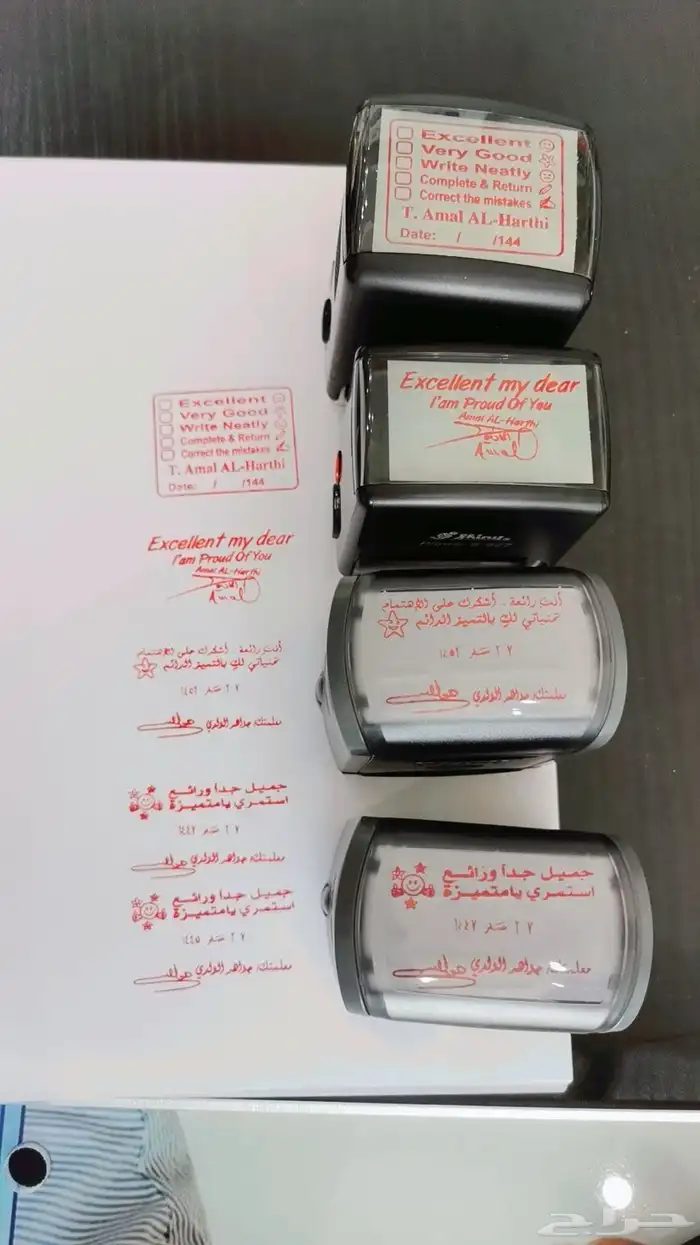 Excellent
Very Good
Write Neatly
Complete & Return
Correct the mistakes
T. Amal AL-Harthi
Date: / /144
Excellent my dear
I'am Proud Of You
Amal AL-Harthi
Amal
Shiny
أنتِ رائعة .. أشكرك على الإهتمام
تمنياتي لكِ بالتميز الدائم
٢٧ صفر ١٤٥٢
معلمتك: جواهر الولدي
جميل جداً ورائع
استمري يامتميزة
٢٧ صفر ١٤٤٧
معلمتك: جواهر الولدي
Excellent
Very Good
Write Neatly
Complete & Return
Correct the mistakes
T. Amal AL-Harthi
Date: / /144
Excellent my dear
I'am Proud Of You
Amal AL-Harthi
Amal
أنتِ رائعة .. أشكرك على الإهتمام
تمنياتي لكِ بالتميز الدائم
٢٧ صفر ١٤٥٢
معلمتك: جواهر الولدي
جميل جداً ورائع
استمري يامتميزة
٢٧ صفر ١٤٤٧
معلمتك: جواهر الولدي
جميل جداً ورائع
استمري يامتميزة
٢٧ صفر ١٤٤٥
معلمتك: جواهر الولدي
حراج